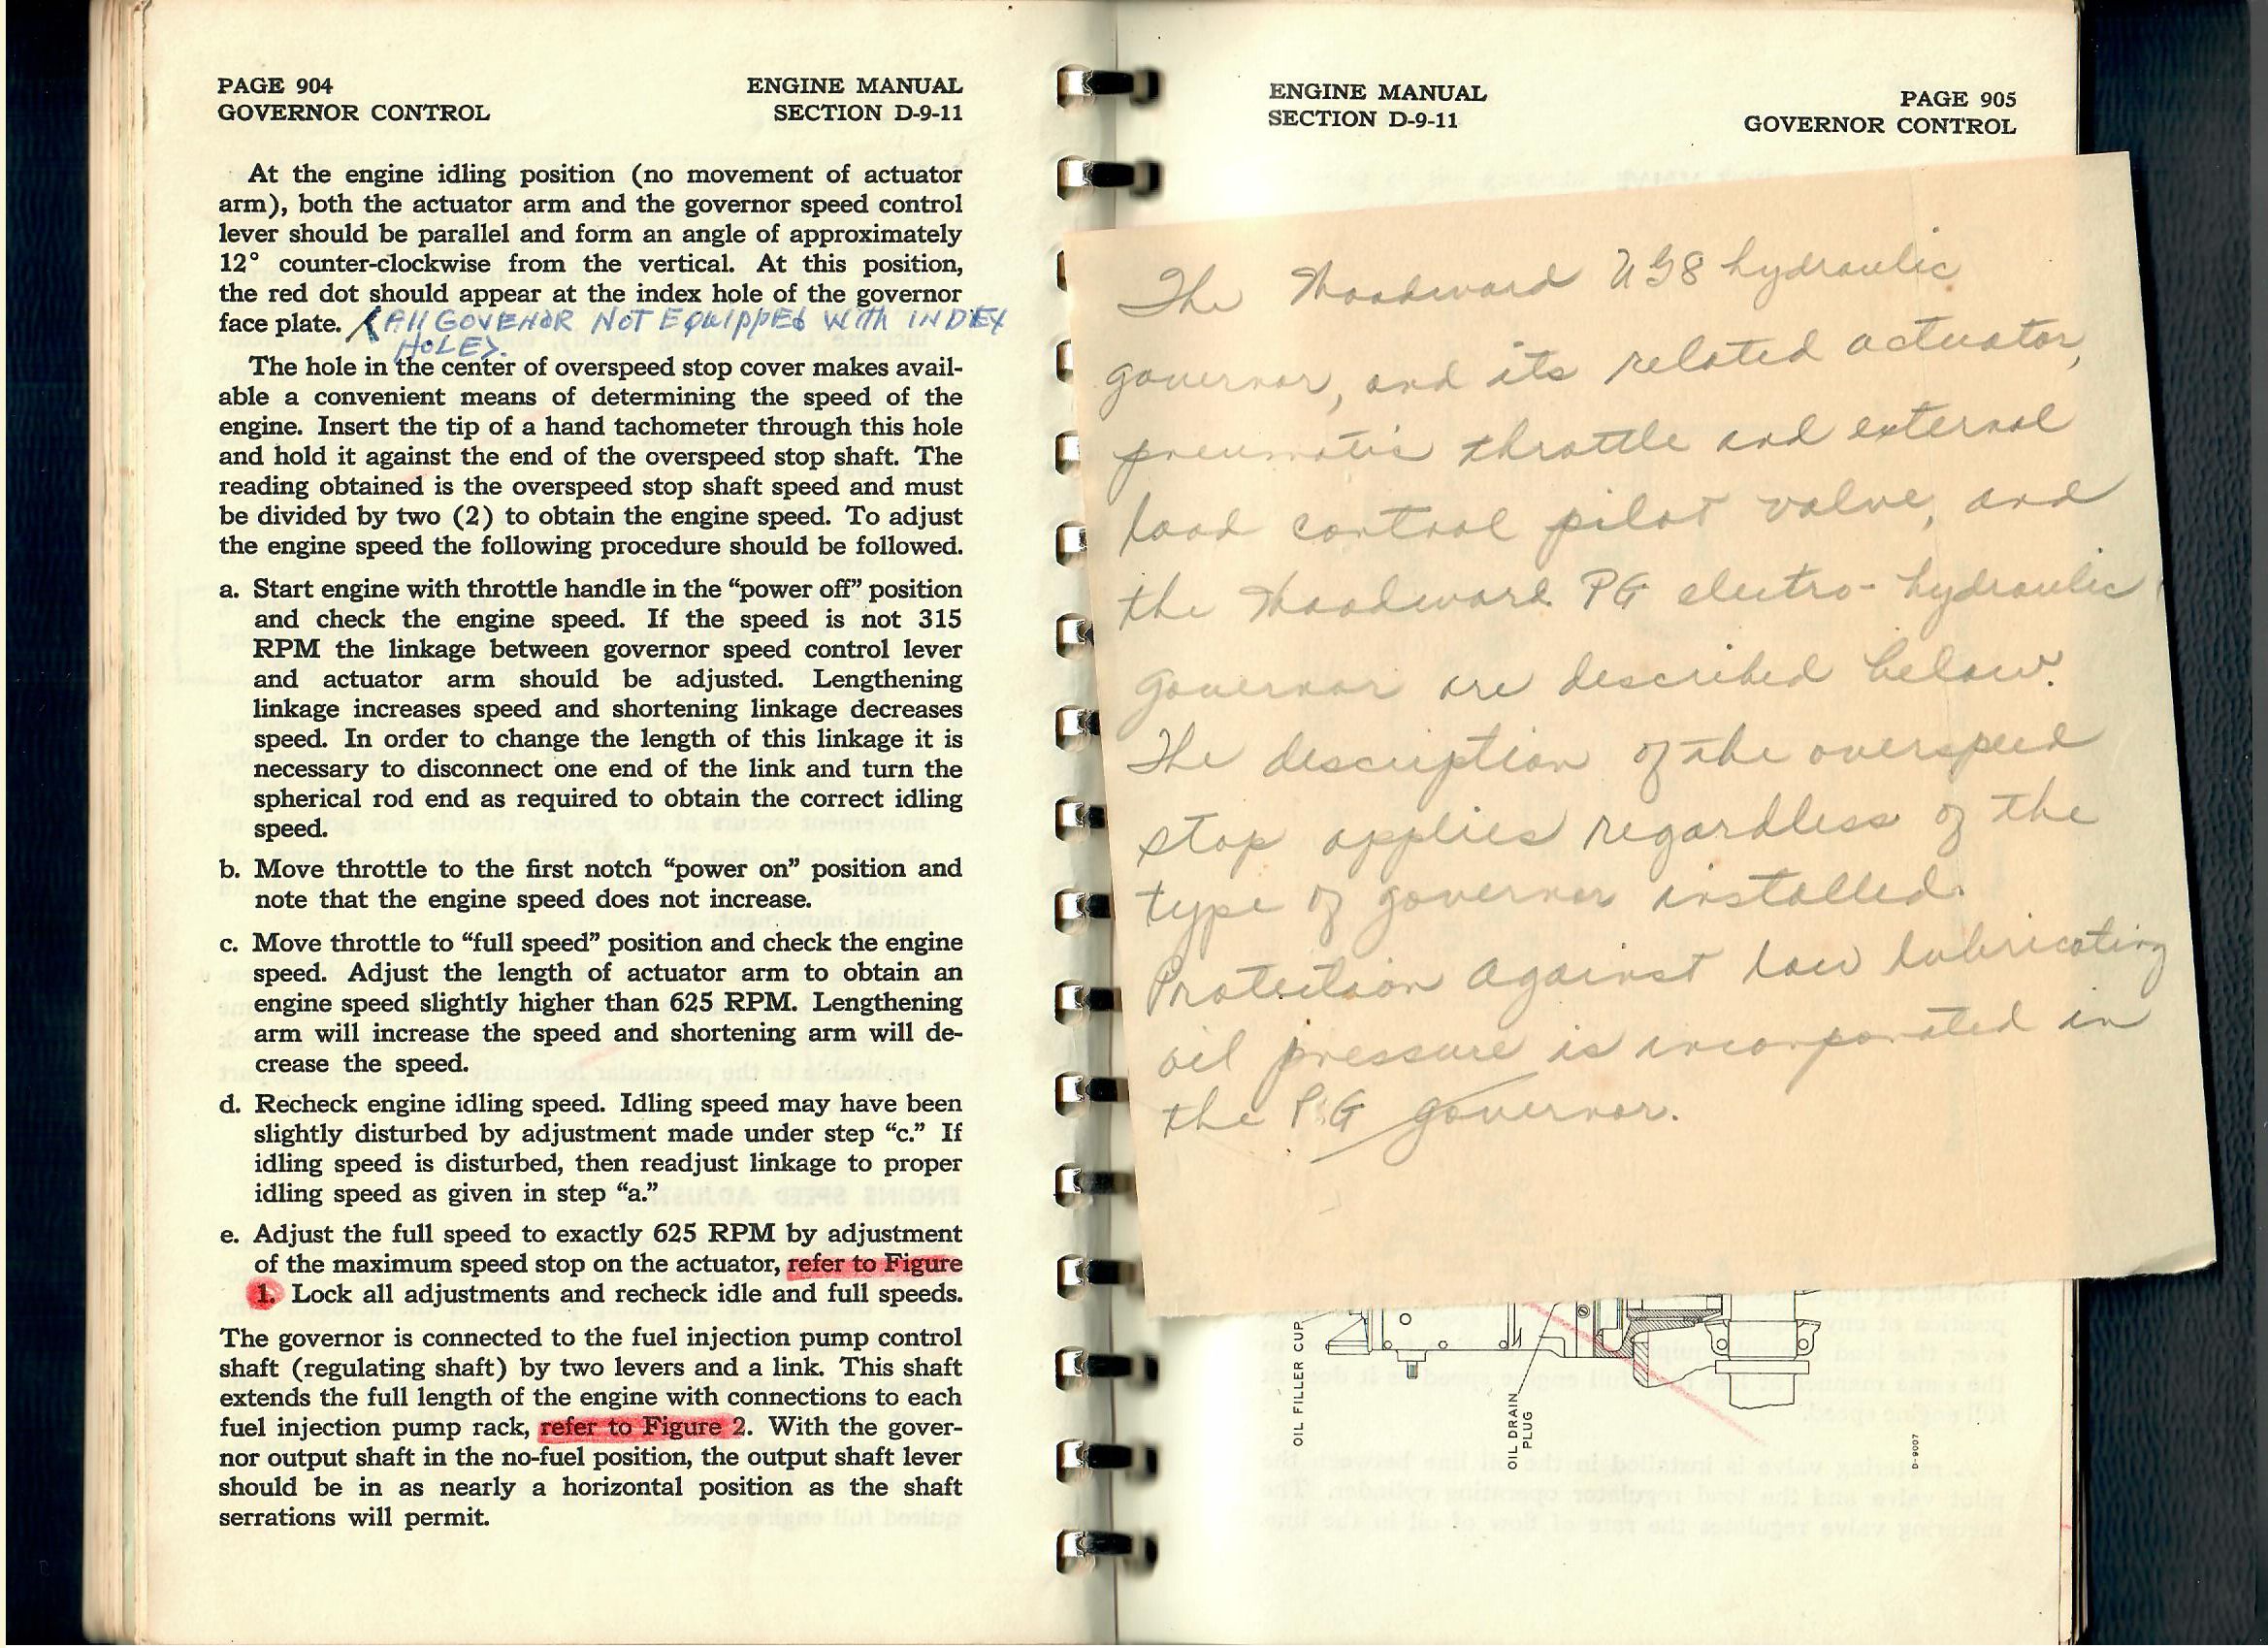 PAGE 904
GOVERNOR CONTROL
ENGINE MANUAL
SECTION D-9-11
At the engine idling position (no movement of actuator
arm), both the actuator arm and the governor speed control
lever should be parallel and form an angle of approximately
12° counter-clockwise from the vertical. At this position,
the red dot should appear at the index hole of the governor
face plate. (All GOVENOR NOT EQUIPPED WITH INDEX
HOLES.
The hole in the center of overspeed stop cover makes avail-
able a convenient means of determining the speed of the
engine. Insert the tip of a hand tachometer through this hole
and hold it against the end of the overspeed stop shaft. The
reading obtained is the overspeed stop shaft speed and must
be divided by two (2) to obtain the engine speed. To adjust
the engine speed the following procedure should be followed.
a. Start engine with throttle handle in the “power off” position
and check the engine speed. If the speed is not 315
RPM the linkage between governor speed control lever
and actuator arm should be adjusted. Lengthening
linkage increases speed and shortening linkage decreases
speed. In order to change the length of this linkage it is
necessary to disconnect one end of the link and turn the
spherical rod end as required to obtain the correct idling
speed.
b. Move throttle to the first notch “power on” position and
note that the engine speed does not increase.
c. Move throttle to “full speed” position and check the engine
speed. Adjust the length of actuator arm to obtain an
engine speed slightly higher than 625 RPM. Lengthening
arm will increase the speed and shortening arm will de-
crease the speed.
d. Recheck engine idling speed. Idling speed may have been
slightly disturbed by adjustment made under step “c.” If
idling speed is disturbed, then readjust linkage to proper
idling speed as given in step “a.”
e. Adjust the full speed to exactly 625 RPM by adjustment
of the maximum speed stop on the actuator, refer to Figure
1. Lock all adjustments and recheck idle and full speeds.
The governor is connected to the fuel injection pump control
shaft (regulating shaft) by two levers and a link. This shaft
extends the full length of the engine with connections to each
fuel injection pump rack, refer to Figure 2. With the gover-
nor output shaft in the no-fuel position, the output shaft lever
should be in as nearly a horizontal position as the shaft
serrations will permit.
ENGINE MANUAL
SECTION D-9-11
PAGE 905
GOVERNOR CONTROL
The Woodward UG8 hydraulic
governor, and its related actuator,
pneumatic throttle and external
load control pilot valve, and
the Woodward PG electro-hydraulic
governor are described below.
The description of the overspeed
stop applies regardless of the
type of governor installed.
Protection against low lubricating
oil pressure is incorporated in
the PG governor.
OIL FILLER CUP
OIL DRAIN
PLUG
D-9007